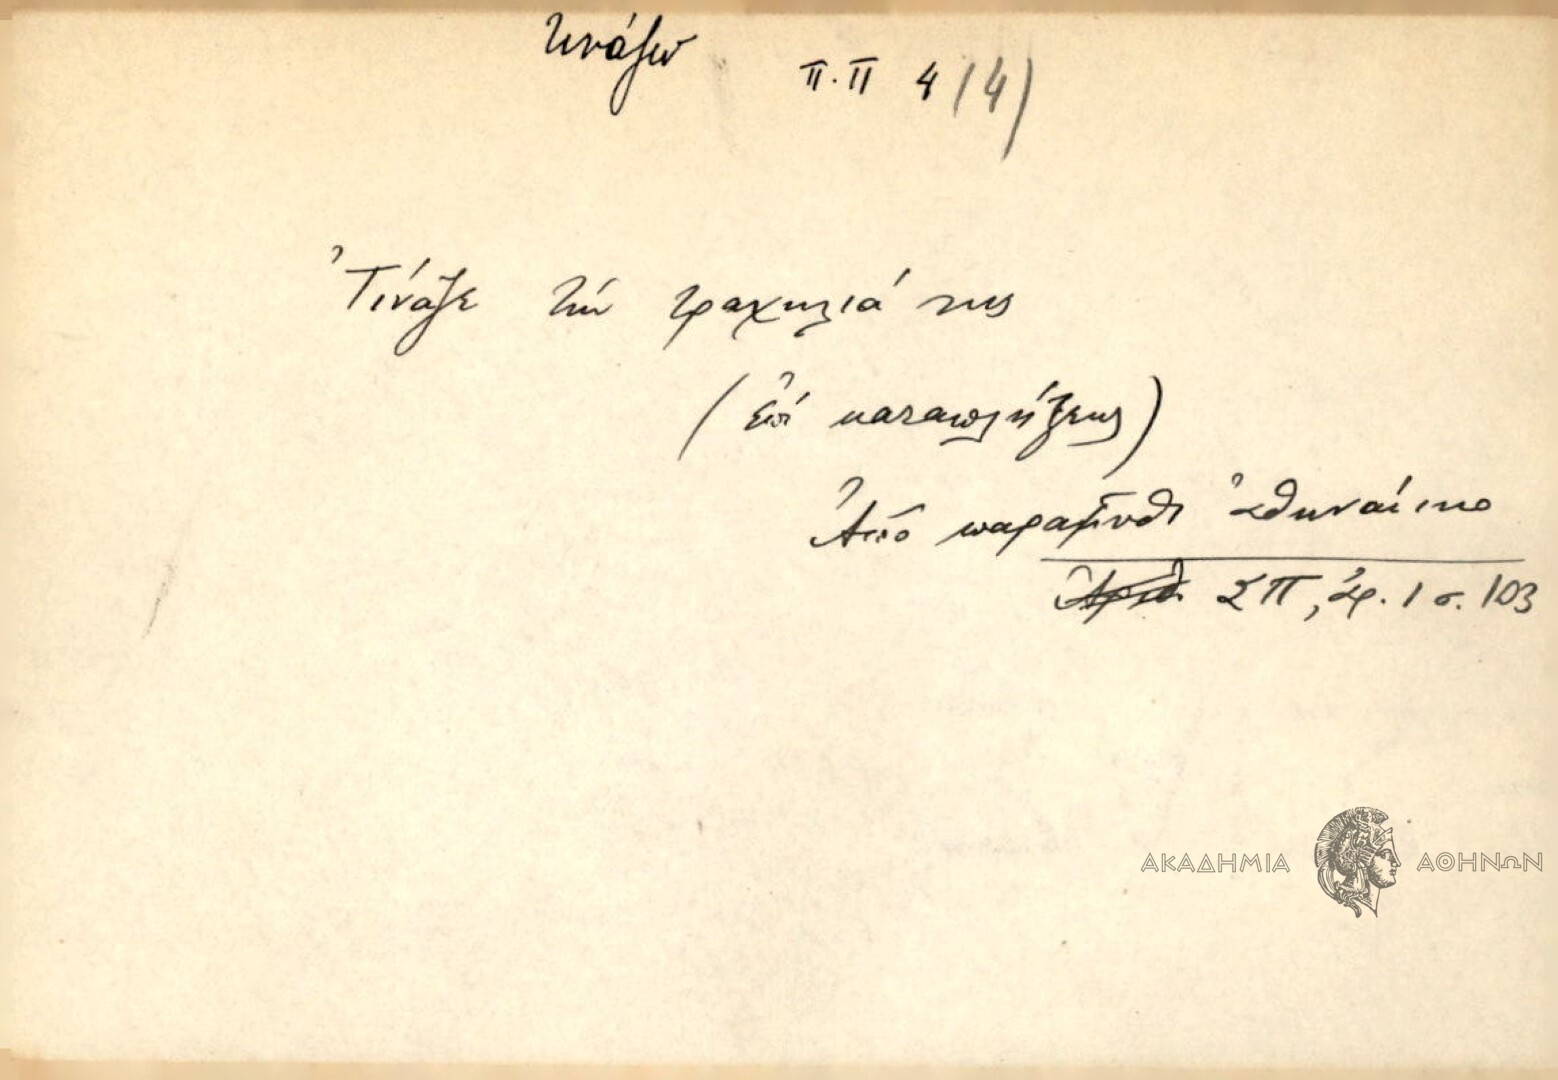 τινάζω
Π.Π 4 (4)
'Τίναζε τὴν τραχηλιά της
(ἐπὶ καταπλήξεως)
Ἀπὸ παραμῦθι ἀθηναίικο
Ἀριθ ΣΠ, ἀρ. 1 σ. 103
ΑΚΑΔΗΜΙΑ ΑΘΗΝΩΝ